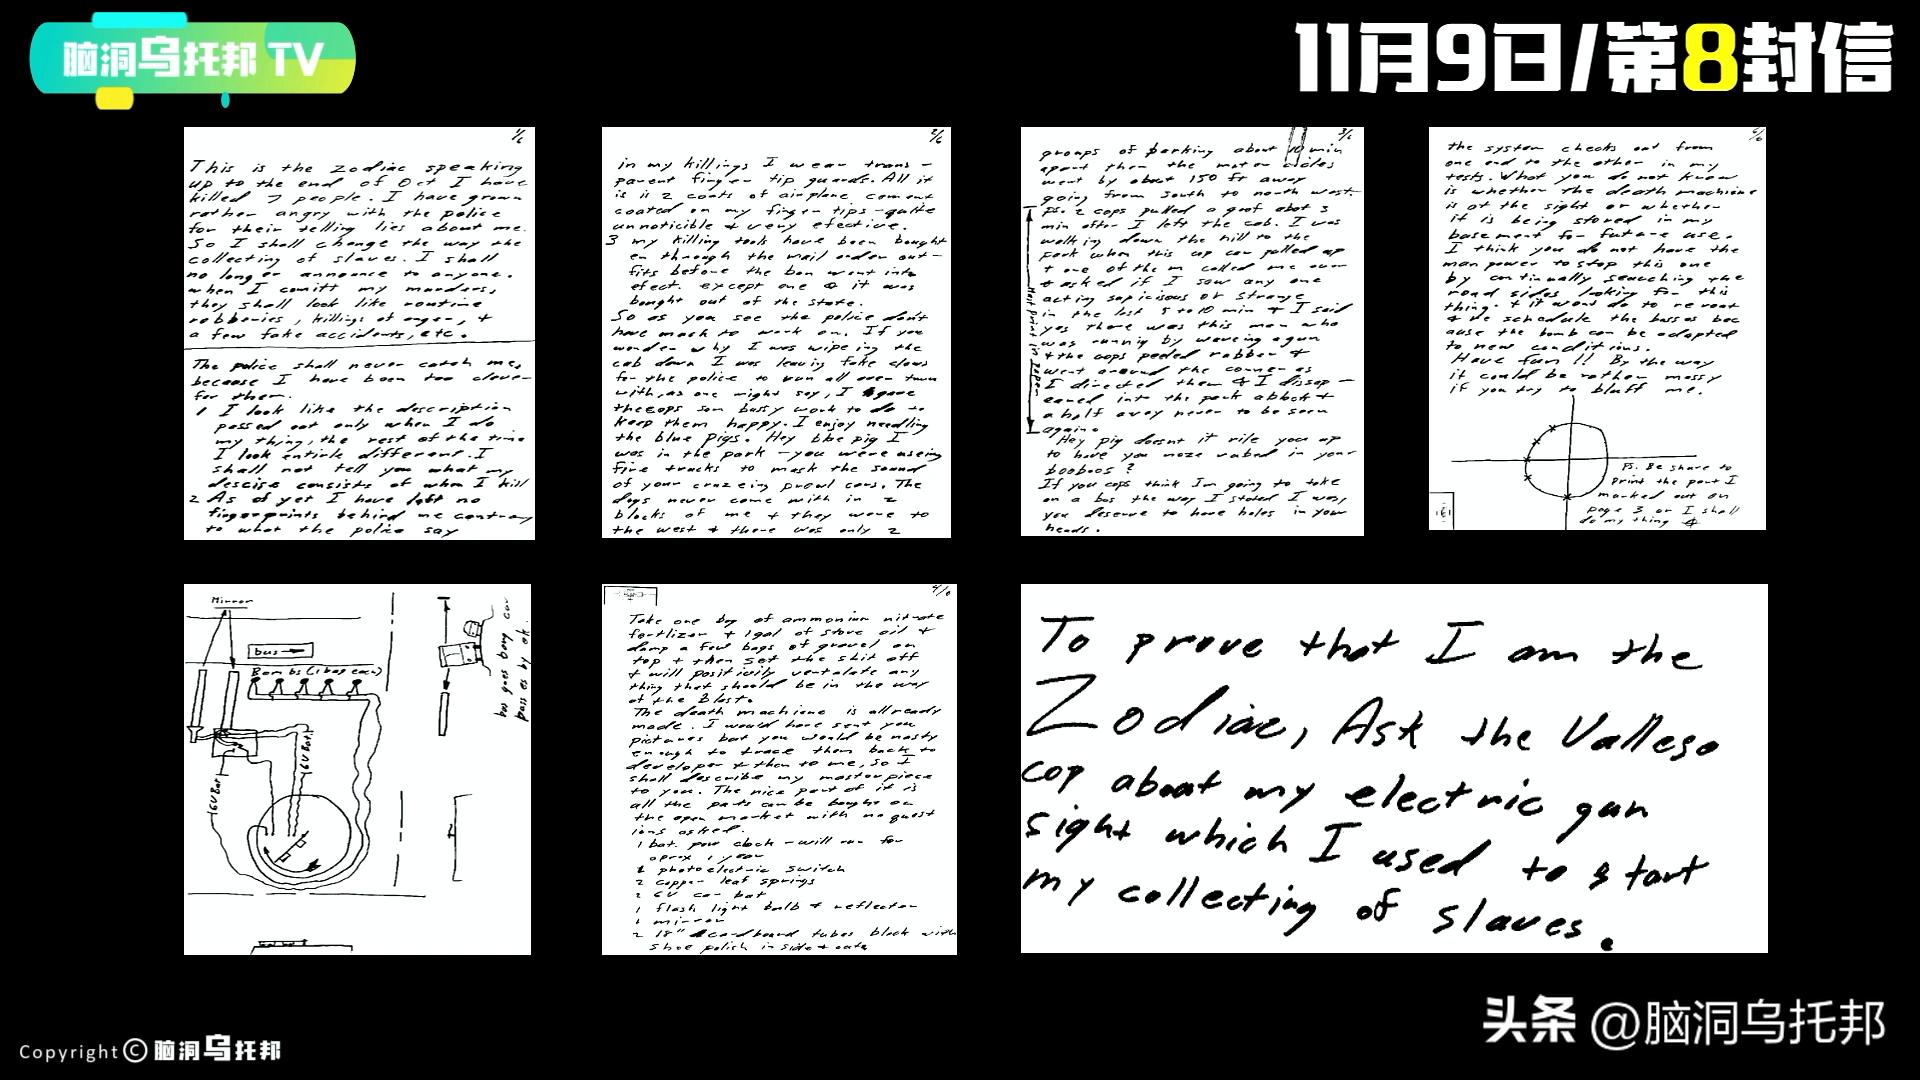 脑洞乌托邦 TV
11月9日/第8封信
1/6
This is the Zodiac speaking
up to the end of Oct I have
killed 7 people. I have grown
rather angry with the police
for their telling lies about me.
So I shall change the way the
collecting of slaves. I shall
no longer announce to anyone.
when I comitt my murders,
they shall look like routine
robberies, killings of anger, +
a few fake accidents, etc.
The police shall never catch me,
because I have been too clever
for them.
1 I look like the description
passed out only when I do
my thing, the rest of the time
I look entirle different. I
shall not tell you what my
descise consists of when I kill
2 As of yet I have left no
fingerprints behind me contrary
to what the police say
2/6
in my killings I wear trans-
parent finger tip guards. All it
is is 2 coats of airplane cement
coated on my finger tips - quite
unnoticible + very efective.
3 my killing tools have been bought
en through the mail order out-
fits before the ban went into
efect. except one & it was
bought out of the state.
So as you see the police don't
have much to work on. If you
wonder why I was wipeing the
cab down I was leaving fake clews
for the police to run all over town
with, as one might say, I gave
the cops som bussy work to do to
keep them happy. I enjoy needling
the blue pigs. Hey blue pig I
was in the park - you were useing
fire trucks to mask the sound
of your cruzeing prowl cars. The
dogs never come with in 2
blocks of me + they were to
the west + there was only 2
3/6
groups of parking about 10 min
apart then the motor cicles
went by about 150 ft away
going from south to north west.
ps. 2 cops pulled a goof abot 3
min after I left the cab. I was
walking down the hill to the
park when this cop car pulled up
+ one of them called me over
+ asked if I saw any one
acting supicisous or strange
in the last 5 to 10 min + I said
yes there was this man who
was runnig by waveing a gun
+ the cops peeled rubber +
went around the corner as
I directed them & I dissap-
eared into the park a block +
a half away never to be seen
again.
Must print in paper
Hey pig doesnt it rile you up
to have you noze rubed in your
booboos?
If you cops think Im going to take
on a bus the way I stated I was,
you deserve to have holes in your
heads.
the system checks out from
one end to the other in my
tests. What you do not know
is whether the death machine
is at the sight or whether
it is being stored in my
basement for future use.
I think you do not have the
man power to stop this one
by continually searching the
road sides looking for this
thing. + it wont do to re roat
+ re schedule the busses bec
ause the bomb can be adapted
to new conditions.
Have fun!! By the way
it could be rather messy
if you try to bluff me.
PS. Be shure to
print the part I
marked out on
page 3 or I shall
do my thing
Mirror
bus
Bombs (1 bag each)
6V Bat
6V Bat
bus goes bang car
passes by ok.
4/6
Take one bag of ammonium nitrate
fertlizer + 1 gal of stove oil +
dump a few bags of gravel on
top + then set the shit off
+ will positivily ventalate any
thing that should be in the way
of the Blast.
The death machiene is allready
made. I would have sent you
pictures but you would be nasty
enough to trace them back to
developer + then to me, so I
shall describe my masterpiece
to you. The nice part of it is
all the parts can be bought on
the open market with no quest
ions asked.
1 bat. pow clock - will run for
aprox 1 year
1 photoelectric switch
2 copper leaf springs
2 6V car bat
1 flash light bulb + reflector
1 mirror
2 18" cardboard tubes black with
shoe polish in side + oute
To prove that I am the
Zodiac, Ask the Vallejo
cop about my electric gun
sight which I used to start
my collecting of slaves.
头条 @脑洞乌托邦
Copyright © 脑洞乌托邦